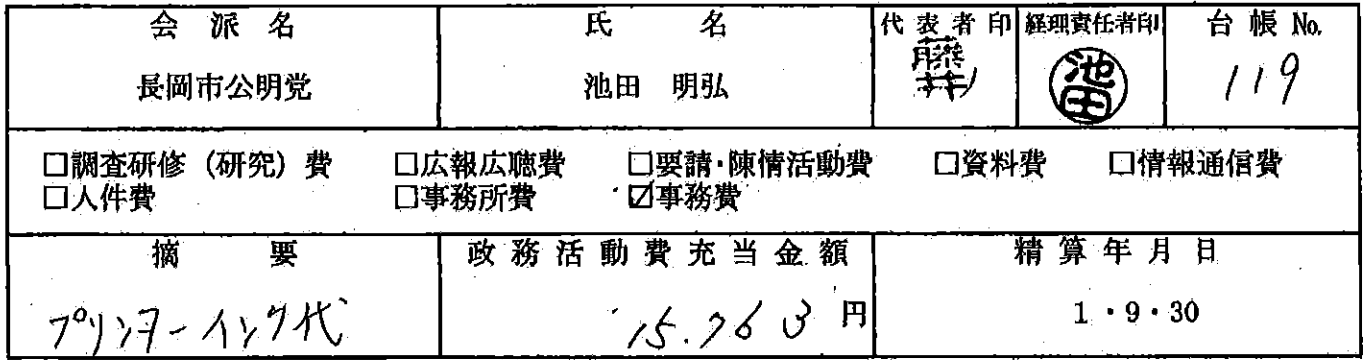 会派名 氏名 代表者印 経理責任者印 台帳No.
長岡市公明党 池田 明弘 藤井 池田 119
□調査研修(研究)費 □広報広聴費 □要請・陳情活動費 □資料費 □情報通信費
□人件費 □事務所費 ☑事務費
摘要 政務活動費充当金額 精算年月日
プリンターインク代 15.763円 1・9・30